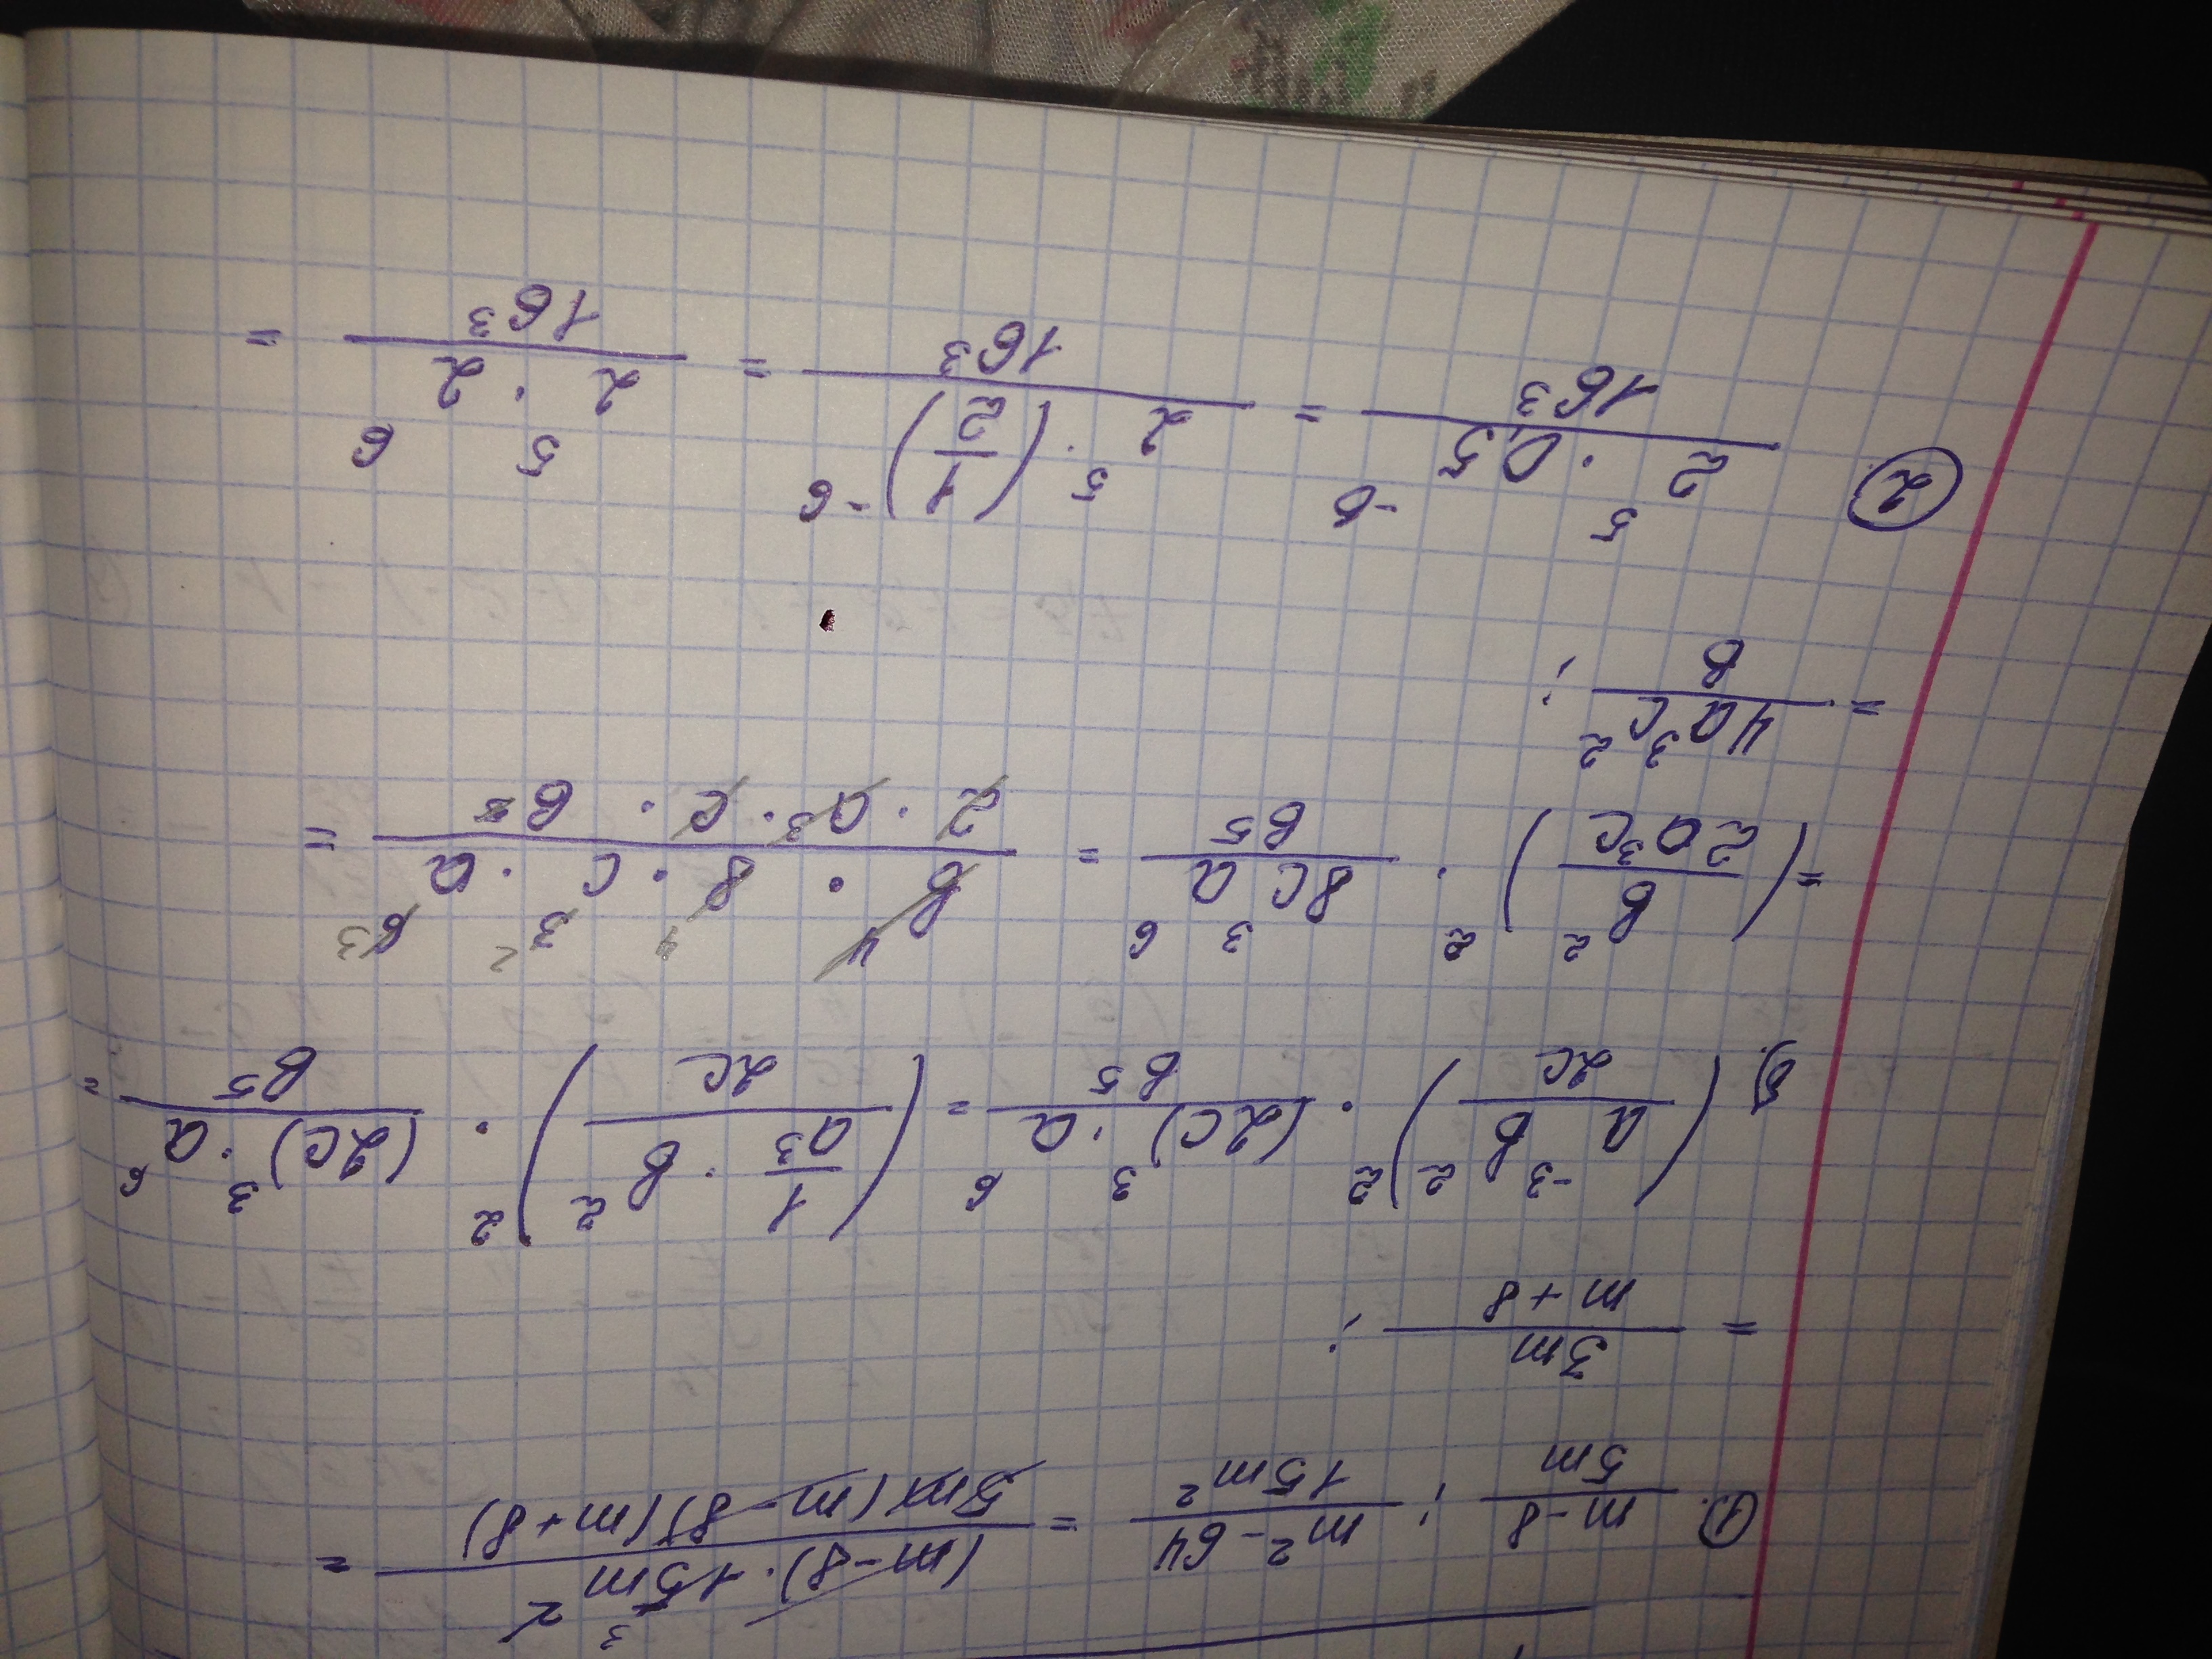 а). \frac{m-8}{5m} : \frac{m^2-64}{15m^2} = \frac{(m-8) \cdot 15m^2}{5m(m-8)(m+8)} =
= \frac{3m}{m+8} ;
б) \left(\frac{a^{-3}b^2}{2c}\right)^2 \cdot \frac{(2c)^3 \cdot a^6}{b^5} = \left(\frac{\frac{1}{a^3} \cdot b^2}{2c}\right)^2 \cdot \frac{(2c)^3 \cdot a^6}{b^5} =
= \left(\frac{b^2}{2a^3c}\right)^2 \cdot \frac{8c^3a^6}{b^5} = \frac{b^4 \cdot 8 \cdot c^3 \cdot a^6}{2 \cdot a^3 \cdot c \cdot b^5} =
= \frac{4a^3c^2}{b} ;
② \frac{2^5 \cdot 0,5^{-6}}{16^3} = \frac{2^5 \cdot \left(\frac{1}{2}\right)^{-6}}{16^3} = \frac{2^5 \cdot 2^6}{16^3} =